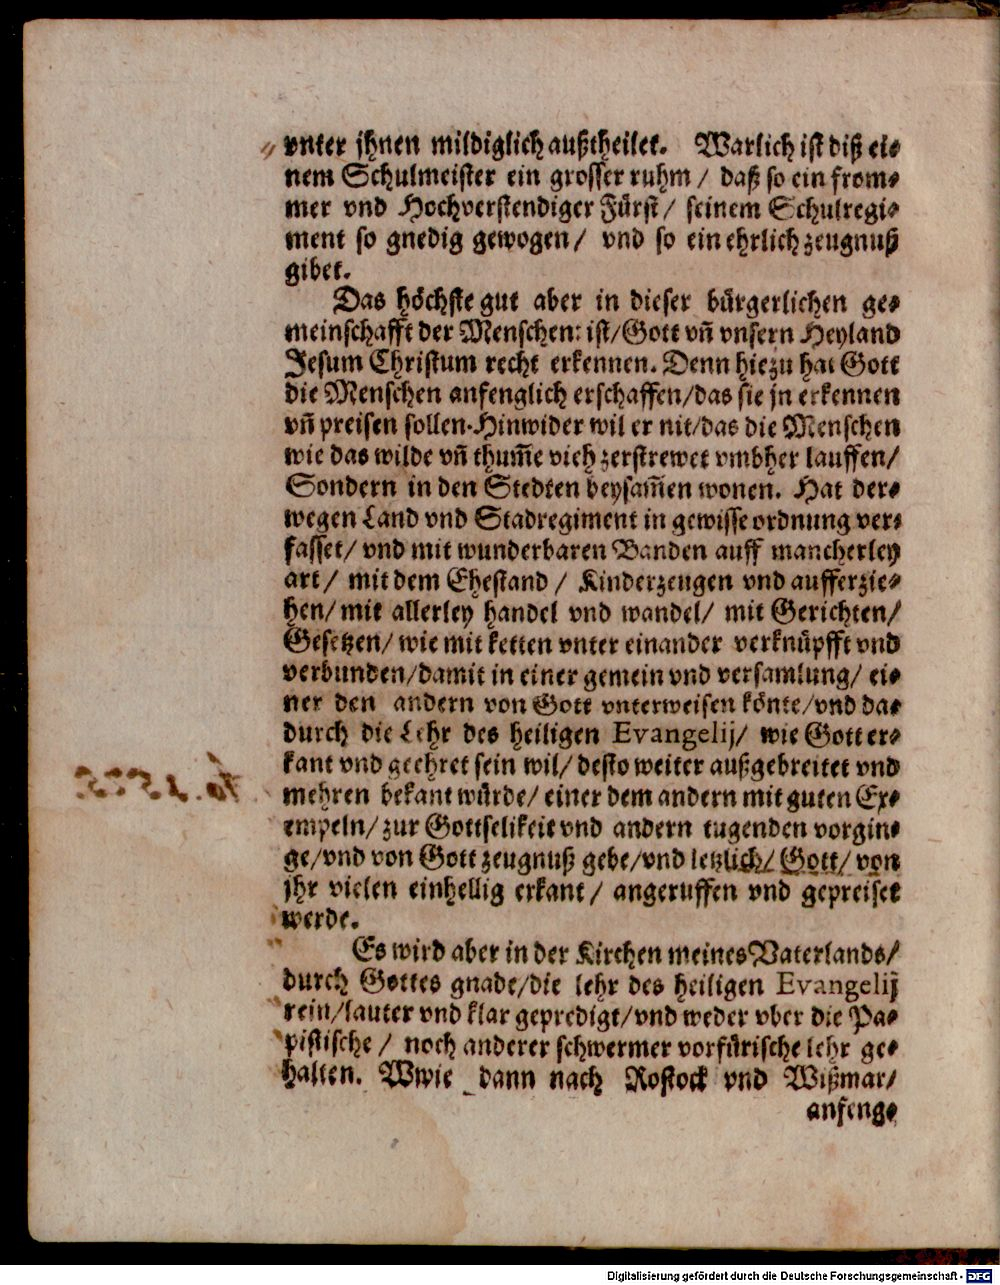 vnter jhnen mildiglich außtheilet. Warlich ist diß ei⸗
nem Schulmeister ein grosser ruhm / daß so ein from⸗
mer vnd Hochverstendiger Fürst / seinem Schulregi⸗
ment so gnedig gewogen / vnd so ein ehrlich zeugnuß
gibet.
Das höchste gut aber in dieser bürgerlichen ge⸗
meinschafft der Menschen: ist/ Gott vn̄ vnsern Heyland
Jesum Christum recht erkennen. Denn hiezu hat Gott
die Menschen anfenglich erschaffen/ das sie jn erkennen
vn̄ preisen sollen. Hinwider wil er nit/ das die Menschen
wie das wilde vn̄ thum̄e vieh zerstrewet vmbher lauffen/
Sondern in den Stedten beysam̄en wonen. Hat der⸗
wegen Land vnd Stadregiment in gewisse ordnung ver⸗
fasset/ vnd mit wunderbaren Banden auff mancherley
art / mit dem Ehestand / Kinderzeugen vnd aufferzie⸗
hen/ mit allerley handel vnd wandel/ mit Gerichten/
Gesetzen/ wie mit ketten vnter einander verknüpfft vnd
verbunden/ damit in einer gemein vnd versamlung/ ei⸗
ner den andern von Gott vnterweisen könte/ vnd da⸗
durch die Lehr des heiligen Evangelij/ wie Gott er⸗
kant vnd geehret sein wil/ desto weiter außgebreitet vnd
mehren bekant würde/ einer dem andern mit guten Ex⸗
empeln/ zur Gottselikeit vnd andern tugenden vorgin⸗
ge/ vnd von Gott zeugnuß gebe/ vnd letzlich/ Gott/ von
jhr vielen einhellig erkant / angeruffen vnd gepreiset
werde.
Es wird aber in der Kirchen meines Vaterlands/
durch Gottes gnade/ die lehr des heiligen Evangelij
rein/ lauter vnd klar gepredigt/ vnd weder vber die Pa⸗
pistische / noch anderer schwermer vorfürische lehr ge⸗
halten. Wwie dann nach Rostock vnd Wißmar/
anfeng⸗
Digitalisierung gefördert durch die Deutsche Forschungsgemeinschaft - DFG